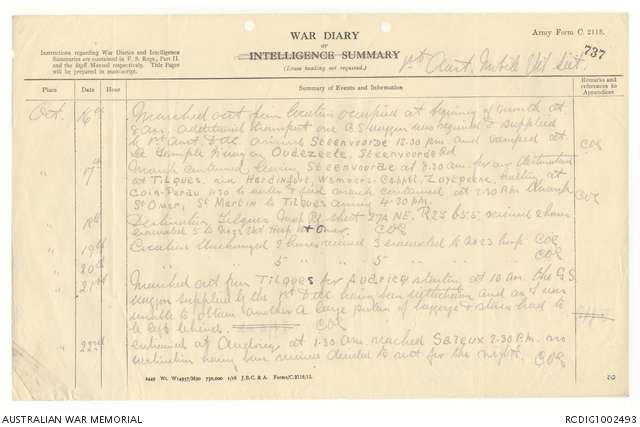 WAR DIARY
or
INTELLIGENCE SUMMARY
(Erase heading not required.)
Army Form C. 2118.
737
1st Aust. Mobile Vet Sect.
Instructions regarding War Diaries and Intelligence
Summaries are contained in F. S. Regs., Part II.
and the Staff Manual respectively. Title Pages
will be prepared in manuscript.
Place Date Hour Summary of Events and Information Remarks and references to Appendices
Oct. 16th Marched out from location occupied at beginning of month at
8 am. additional transport one G.S. wagon was required & supplied
by 1st Aust D.A.C. arrived Steenvoorde 12.30 pm and camped at
Le Temple Oudezeele, Steenvoorde Rd. COG
17th March continued leaving Steenvoorde at 8.30 am for our destination
at Tilques. via Hardinfort, Wemaers-Cappel, Zuytpeene, halting at
Coin-Perdu 1.30 to water & feed march continued at 2.30 P.M. through
St Omer, St Martin to Tilques arriving 4.30 pm. COG
18th Destination Tilques Map Ref. sheet 27A NE. R25 b5.5 received 2 horses
evacuated 5 to No 23 Vet Hosp St Omer. COG
19th Location Unchanged 2 horses received 3 evacuated to No 23 Hosp COG
20th " " 5 " " 5 " " COG
21st Marched out from Tilques for Audricq starting at 10 am the G.S.
wagon supplied by the 1st D.A.C. having been withdrawn and as I was
unable to obtain another a large portion of baggage & stores had to
be left behind. COG
22nd entrained at Audricq at 1.30 am reached Saleux 2.30 P.M. no
instructions having been received decided to rest for the night. COG
2449 Wt. W14957/M90 750,000 1/16 J.B.C. & A. Forms/C.2118/12.
AUSTRALIAN WAR MEMORIAL
RCDIG1002493